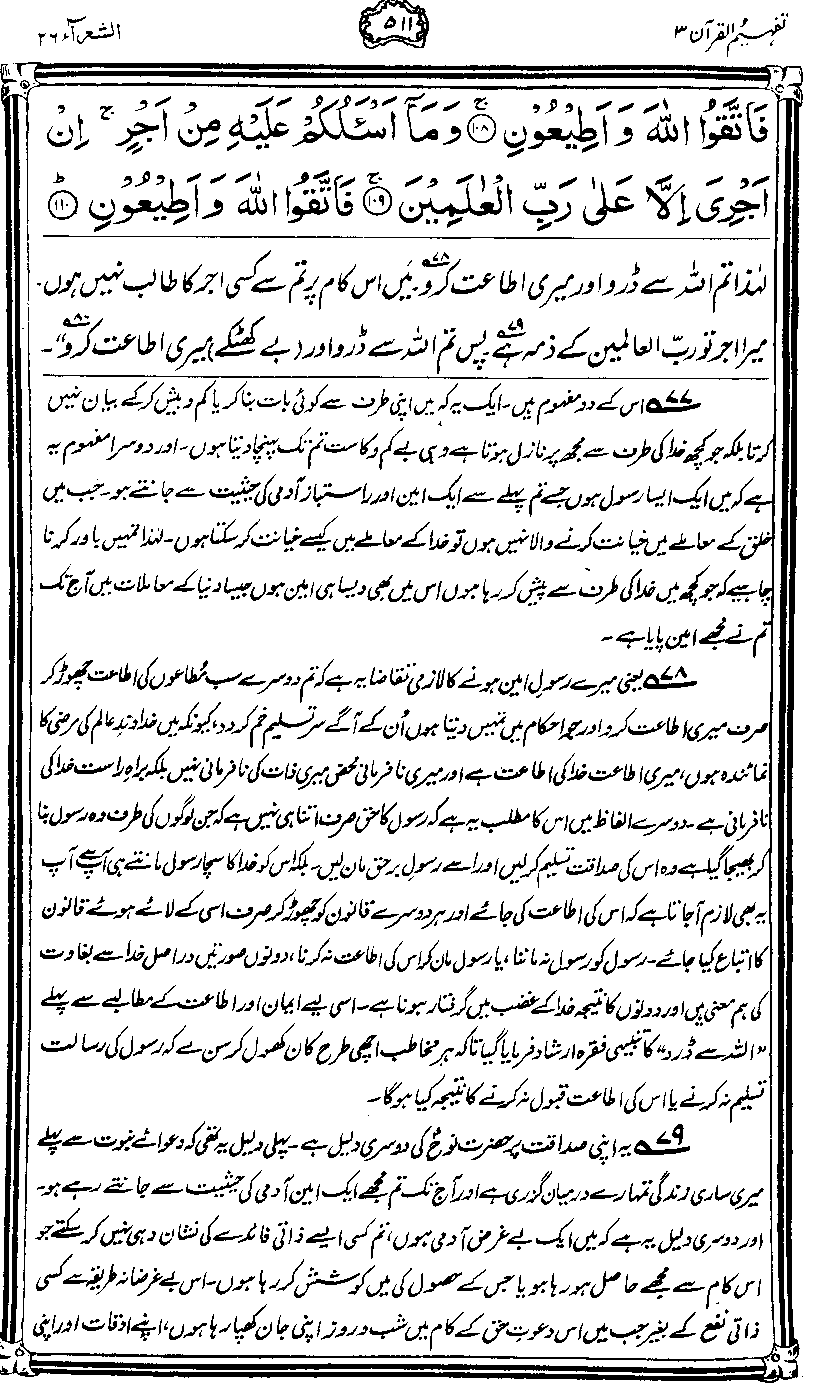 تفہیم القرآن ۳
۵۱۱
الشعرآء ۲۶
فَاتَّقُوا اللّٰهَ وَاَطِيْعُوْنِ ۚ﴿۱۰۸﴾ وَمَآ اَسْـَٔلُكُمْ عَلَيْهِ مِنْ اَجْرٍ ۚ اِنْ
اَجْرِيَ اِلَّا عَلٰى رَبِّ الْعٰلَمِيْنَ ۚ﴿۱۰۹﴾ فَاتَّقُوا اللّٰهَ وَاَطِيْعُوْنِ ؕ﴿۱۱۰﴾
لہٰذا تم اللہ سے ڈرو اور میری اطاعت کرو۷۸۔ میں اس کام پر تم سے کسی اجر کا طالب نہیں ہوں۔
میرا اجر تو ربّ العالمین کے ذمہ ہے۷۹۔ پس تم اللہ سے ڈرو اور (بے کھٹکے) میری اطاعت کرو۸۰“۔
۷۷ اس کے دو مفہوم ہیں۔ ایک یہ کہ میں اپنی طرف سے کوئی بات بنا کر یا کم و بیش کر کے بیان نہیں
کرتا بلکہ جو کچھ خدا کی طرف سے مجھ پر نازل ہوتا ہے وہی بے کم و کاست تم تک پہنچا دیتا ہوں۔ اور دوسرا مفہوم یہ
ہے کہ میں ایک ایسا رسول ہوں جسے تم پہلے سے ایک امین اور راستباز آدمی کی حیثیت سے جانتے ہو۔ جب میں
خلق کے معاملے میں خیانت کرنے والا نہیں ہوں تو خدا کے معاملے میں کیسے خیانت کر سکتا ہوں۔ لہٰذا تمہیں باور کرنا
چاہیے کہ جو کچھ میں خدا کی طرف سے پیش کر رہا ہوں اس میں بھی ویسا ہی امین ہوں جیسا دنیا کے معاملات میں آج تک
تم نے مجھے امین پایا ہے۔
۷۸ یعنی میرے رسولِ امین ہونے کا لازمی تقاضا یہ ہے کہ تم دوسرے سب مُطاعوں کی اطاعت چھوڑ کر
صرف میری اطاعت کرو اور جو احکام میں تمہیں دیتا ہوں اُن کے آگے سرِ تسلیم خم کر دو، کیونکہ میں خداوندِ عالم کی مرضی کا
نمائندہ ہوں، میری اطاعت خدا کی اطاعت ہے اور میری نافرمانی محض میری ذات کی نافرمانی نہیں بلکہ براہِ راست خدا کی
نافرمانی ہے۔ دوسرے الفاظ میں اس کا مطلب یہ ہے کہ رسول کا حق صرف اتنا ہی نہیں ہے کہ جن لوگوں کی طرف وہ رسول بنا
کر بھیجا گیا ہے وہ اس کی صداقت تسلیم کر لیں اور اسے رسول برحق مان لیں۔ بلکہ اس کو خدا کا سچا رسول مانتے ہی آپ سے آپ
یہ بھی لازم آ جاتا ہے کہ اس کی اطاعت کی جائے اور ہر دوسرے قانون کو چھوڑ کر صرف اسی کے لائے ہوئے قانون
کا اتباع کیا جائے۔ رسول کو رسول نہ ماننا، یا رسول مان کر اس کی اطاعت نہ کرنا، دونوں صورتیں دراصل خدا سے بغاوت
کی ہم معنی ہیں اور دونوں کا نتیجہ خدا کے غضب میں گرفتار ہونا ہے۔ اسی لیے ایمان اور اطاعت کے مطالبے سے پہلے
”اللہ سے ڈرو“ کا تنبیہی فقرہ ارشاد فرمایا گیا تاکہ ہر مخاطب اچھی طرح کان کھول کر سن لے کہ رسول کی رسالت
تسلیم نہ کرنے یا اس کی اطاعت قبول نہ کرنے کا نتیجہ کیا ہوگا۔
۷۹ یہ اپنی صداقت پر حضرت نوحؑ کی دوسری دلیل ہے۔ پہلی دلیل یہ تھی کہ دعوائے نبوت سے پہلے
میری ساری زندگی تمہارے درمیان گزری ہے اور آج تک تم مجھے ایک امین آدمی کی حیثیت سے جانتے رہے ہو۔
اور دوسری دلیل یہ ہے کہ میں ایک بے غرض آدمی ہوں، تم کسی ایسے ذاتی فائدے کی نشان دہی نہیں کر سکتے جو
اس کام سے مجھے حاصل ہو رہا ہو یا جس کے حصول کی میں کوشش کر رہا ہوں۔ اس بے غرضانہ طریقہ سے کسی
ذاتی نفع کے بغیر جب میں اس دعوتِ حق کے کام میں شب و روز اپنی جان کھپا رہا ہوں، اپنے اوقات اور اپنی